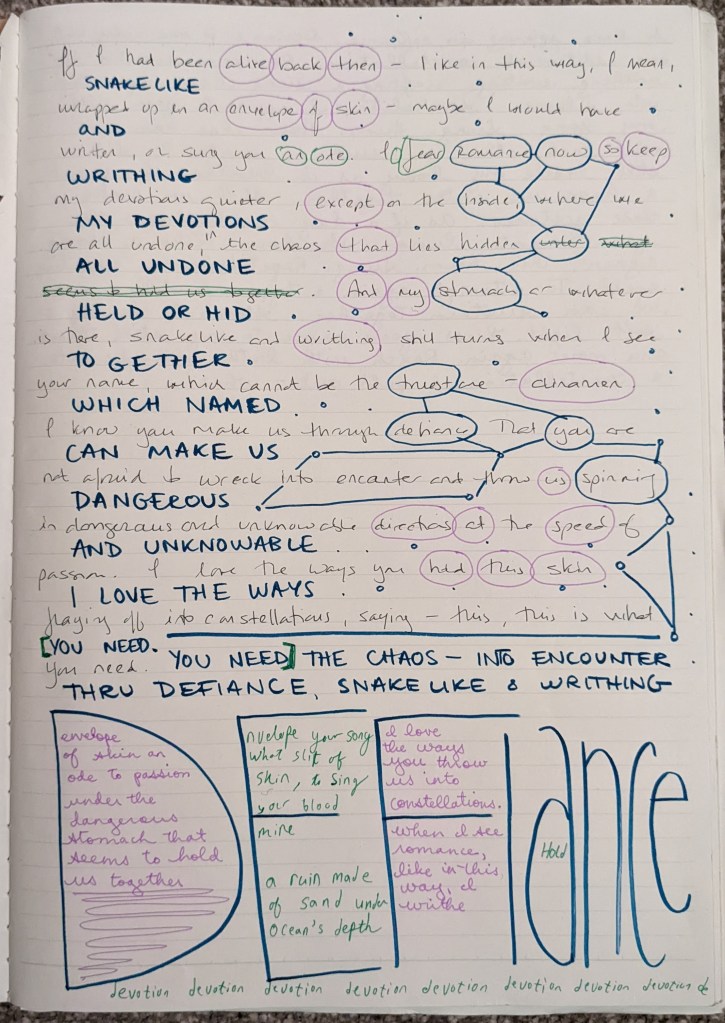 If I had been alive back then – like in this way, I mean,
SNAKELIKE
wrapped up in an envelope of skin – maybe I would have
AND
written, or sung you an ode. I fear Romance now so keep
WRITHING
my devotions quieter, except on the inside, where we
MY DEVOTIONS
are all undone, in the chaos that lies hidden under what
ALL UNDONE
seems to hold us together. And my stomach or whatever
HELD OR HID
is there, snakelike and writhing, still turns when I see
TO GETHER.
your name, which cannot be the truest one – clinamen
WHICH NAMED
I know you make us through defiance. That you are
CAN MAKE US
not afraid to wreck into encounter and throw us spinning
DANGEROUS
in dangerous and unknowable directions at the speed of
AND UNKNOWABLE
passion. I love the ways you had this skin
I LOVE THE WAYS
fraying off into constellations, saying – this, this is what
[YOU NEED.
you need. YOU NEED] THE CHAOS – INTO ENCOUNTER
THRU DEFIANCE, SNAKELIKE & WRITHING
DEFIance
envelope
of skin an
ode to passion
under the
dangerous
stomach that
seems to hold
us together
nvelope your song
what slit of
skin, to sing
your blood
mine
a ruin made
of sand under
ocean's depth
I love
the ways
you throw
us into
constellations.
when I see
romance,
like in this
way, I
writhe
Hold
devotion devotion devotion devotion devotion devotion devotion devotion de